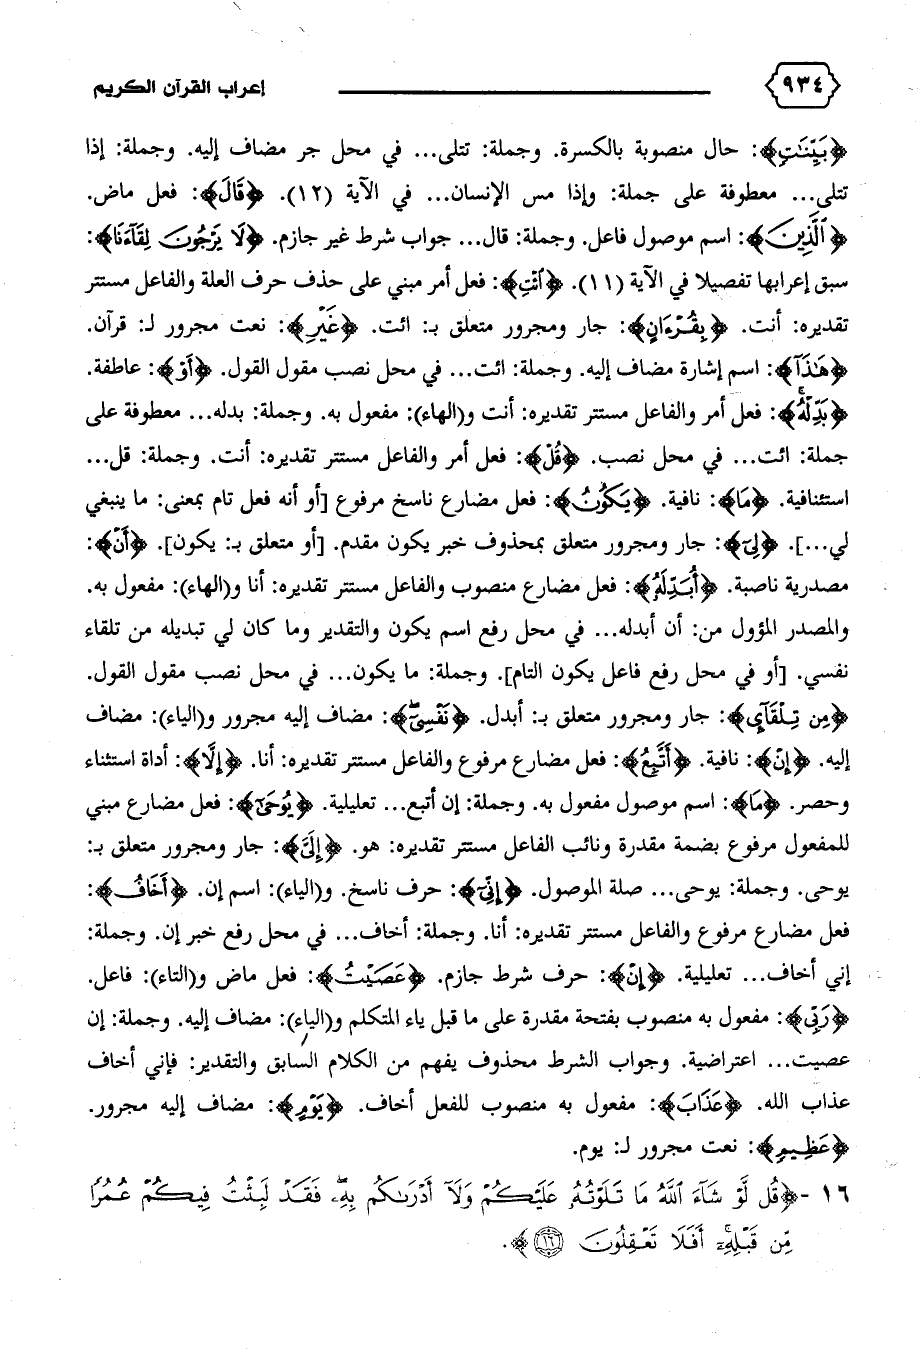 ٩٣٤ إعراب القرآن الكريم
﴿بَيِّنَٰتٍ﴾: حال منصوبة بالكسرة. وجملة: تتلى... في محل جر مضاف إليه. وجملة: إذا
تتلى... معطوفة على جملة: وإذا مس الإنسان... في الآية (١٢). ﴿قَالَ﴾: فعل ماض.
﴿ٱلَّذِينَ﴾: اسم موصول فاعل. وجملة: قال... جواب شرط غير جازم. ﴿لَا يَرْجُونَ لِقَآءَنَا﴾:
سبق إعرابها تفصيلا في الآية (١١). ﴿ٱئْتِ﴾: فعل أمر مبني على حذف حرف العلة والفاعل مستتر
تقديره: أنت. ﴿بِقُرْءَانٍ﴾: جار ومجرور متعلق بـ: ائت. ﴿غَيْرِ﴾: نعت مجرور لـ: قرآن.
﴿هَٰذَآ﴾: اسم إشارة مضاف إليه. وجملة: ائت... في محل نصب مقول القول. ﴿أَوْ﴾: عاطفة.
﴿بَدِّلْهُ﴾: فعل أمر والفاعل مستتر تقديره: أنت و(الهاء): مفعول به. وجملة: بدله... معطوفة على
جملة: ائت... في محل نصب. ﴿قُلْ﴾: فعل أمر والفاعل مستتر تقديره: أنت. وجملة: قل...
استئنافية. ﴿مَا﴾: نافية. ﴿يَكُونُ﴾: فعل مضارع ناسخ مرفوع [أو أنه فعل تام بمعنى: ما ينبغي
لي...]. ﴿لِىٓ﴾: جار ومجرور متعلق بمحذوف خبر يكون مقدم. [أو متعلق بـ: يكون]. ﴿أَنْ﴾:
مصدرية ناصبة. ﴿أُبَدِّلَهُ﴾: فعل مضارع منصوب والفاعل مستتر تقديره: أنا و(الهاء): مفعول به.
والمصدر المؤول من: أن أبدله... في محل رفع اسم يكون والتقدير وما كان لي تبديله من تلقاء
نفسي. [أو في محل رفع فاعل يكون التام]. وجملة: ما يكون... في محل نصب مقول القول.
﴿مِن تِلْقَآيِٕ﴾: جار ومجرور متعلق بـ: أبدل. ﴿نَفْسِىٓ﴾: مضاف إليه مجرور و(الياء): مضاف
إليه. ﴿إِنْ﴾: نافية. ﴿أَتَّبِعُ﴾: فعل مضارع مرفوع والفاعل مستتر تقديره: أنا. ﴿إِلَّا﴾: أداة استثناء
وحصر. ﴿مَا﴾: اسم موصول مفعول به. وجملة: إن أتبع... تعليلية. ﴿يُوحَىٰٓ﴾: فعل مضارع مبني
للمفعول مرفوع بضمة مقدرة ونائب الفاعل مستتر تقديره: هو. ﴿إِلَىَّ﴾: جار ومجرور متعلق بـ:
يوحى. وجملة: يوحى... صلة الموصول. ﴿إِنِّىٓ﴾: حرف ناسخ. و(الياء): اسم إن. ﴿أَخَافُ﴾:
فعل مضارع مرفوع والفاعل مستتر تقديره: أنا. وجملة: أخاف... في محل رفع خبر إن. وجملة:
إني أخاف... تعليلية. ﴿إِنْ﴾: حرف شرط جازم. ﴿عَصَيْتُ﴾: فعل ماض و(التاء): فاعل.
﴿رَبِّى﴾: مفعول به منصوب بفتحة مقدرة على ما قبل ياء المتكلم و(الياء): مضاف إليه. وجملة: إن
عصيت... اعتراضية. وجواب الشرط محذوف يفهم من الكلام السابق والتقدير: فإني أخاف
عذاب الله. ﴿عَذَابَ﴾: مفعول به منصوب للفعل أخاف. ﴿يَوْمٍ﴾: مضاف إليه مجرور.
﴿عَظِيمٍ﴾: نعت مجرور لـ: يوم.
١٦ - ﴿قُل لَّوْ شَآءَ ٱللَّهُ مَا تَلَوْتُهُۥ عَلَيْكُمْ وَلَآ أَدْرَىٰكُم بِهِۦ ۖ فَقَدْ لَبِثْتُ فِيكُمْ عُمُرًا
مِّن قَبْلِهِۦٓ ۚ أَفَلَا تَعْقِلُونَ ١٦﴾.